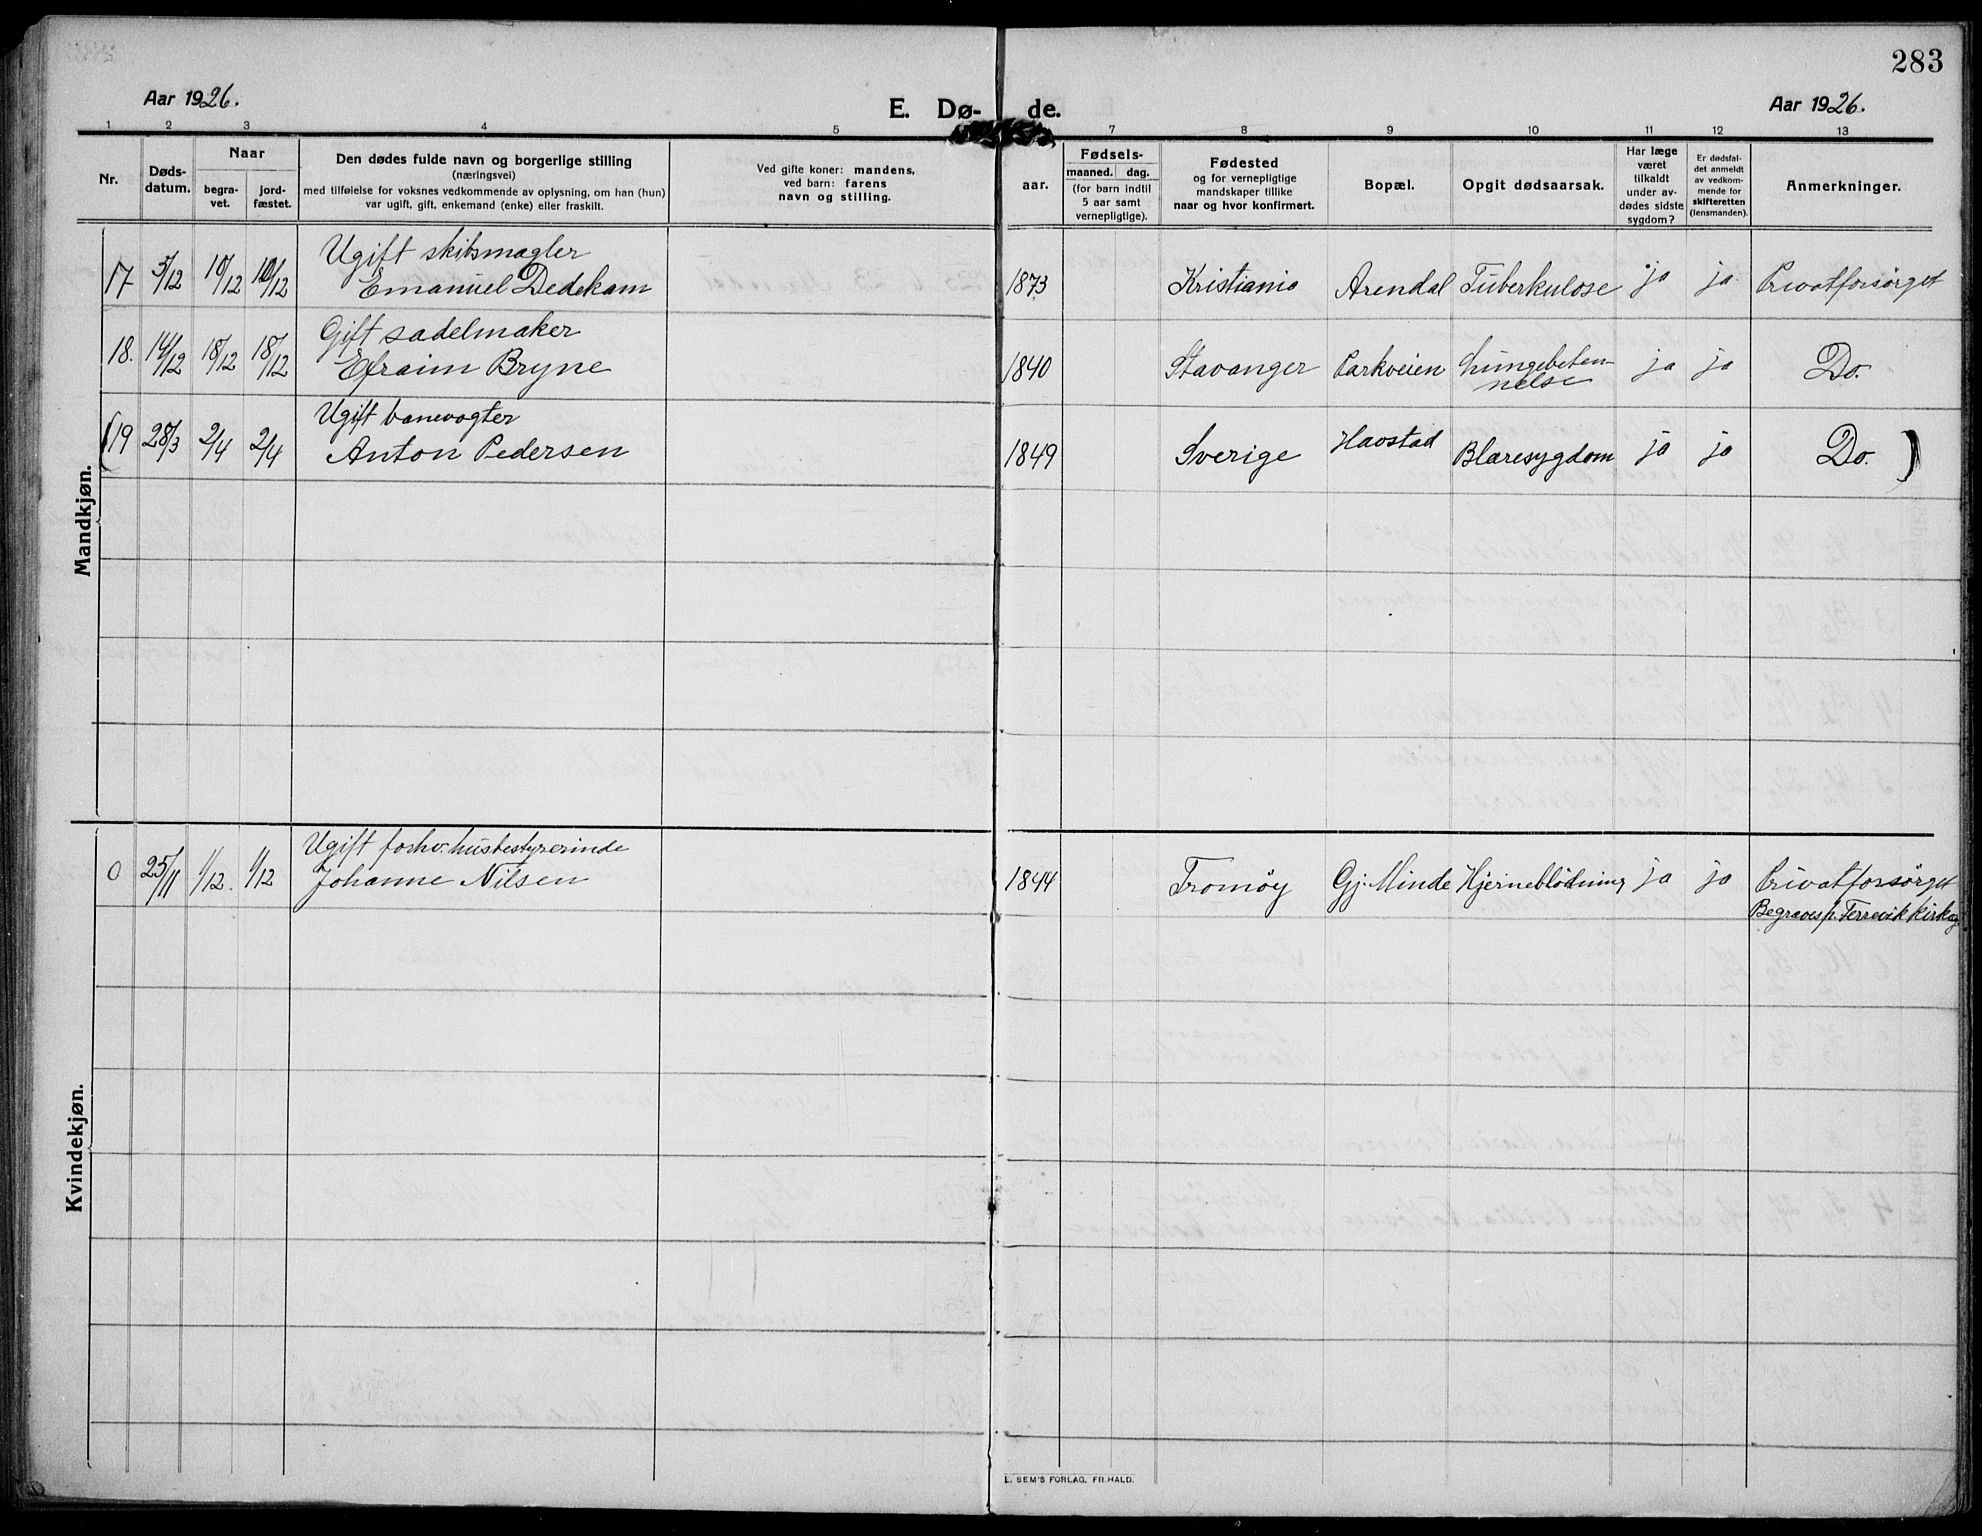 283
Aar 1926.
E. Dø-de.
Aar 1926.
1 2 3 4 5 7 8 9 10 11 12 13
Nr.
Døds-
datum.
Naar
begra-
vet.
jord-
fæstet.
Den dødes fulde navn og borgerlige stilling
(næringsvei)
med tilføielse for voksnes vedkommende av oplysning, om han (hun)
var ugift, gift, enkemand (enke) eller fraskilt.
Ved gifte koner: mandens,
ved barn: farens
navn og stilling.
aar.
Fødsels-
maaned. dag.
(for barn indtil
5 aar samt
vernepligtige).
Fødested
og for vernepligtige
mandskaper tillike
naar og hvor konfirmert.
Bopæl.
Opgit dødsaarsak.
Har læge
været
tilkaldt
under av-
dødes sidste
sygdom?
Er dødsfal-
det anmeldt
av vedkom-
mende for
skifteretten
(lensmanden).
Anmerkninger.
Mandkjøn.
Ugift skibsmægler
17 5/12 10/12 10/12 Emanuel Dedekam 1873 Kristiania Arendal Tuberkulose ja ja Privatforsørget
Gift sadelmaker
18. 14/12 18/12 18/12 Efraim Bryne 1840 Stavanger Parkveien Lungebeten-
nelse ja ja Do.
Ugift banevogter
(19 28/3 2/4 2/4 Anton Pedersen 1849 Sverige Havstad Blæresygdom ja ja Do. )
Kvindekjøn.
Ugift forhv. husbestyrerinde
0 25/11 1/12. 1/12 Johanne Nilsen 1844 Tromøy Gj. Minde Hjerneblødning ja ja Privatforsørget
Begraves p. Færvik kirkeg
L. SEM'S FORLAG, FR.HALD.